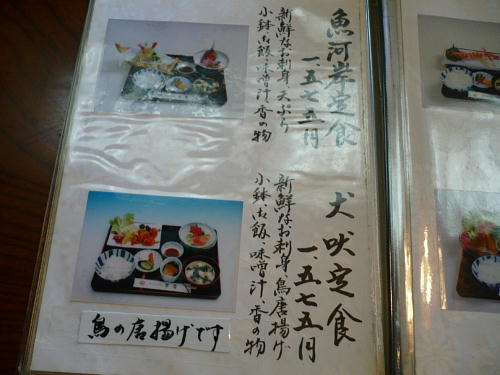 魚河岸定食
一、五七五円
新鮮なお刺身、天ぷら
小鉢、お飯、味噌汁、香の物
犬吠定食
一、五七五円
新鮮なお刺身、鳥唐揚げ
小鉢、お飯、味噌汁、香の物
鳥の唐揚げです